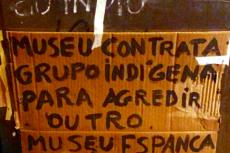 AO ÍNDIO
MUSEU CONTRATA
GRUPO INDÍGENA
PARA AGREDIR
OUTRO.
MUSEU ESPANCA